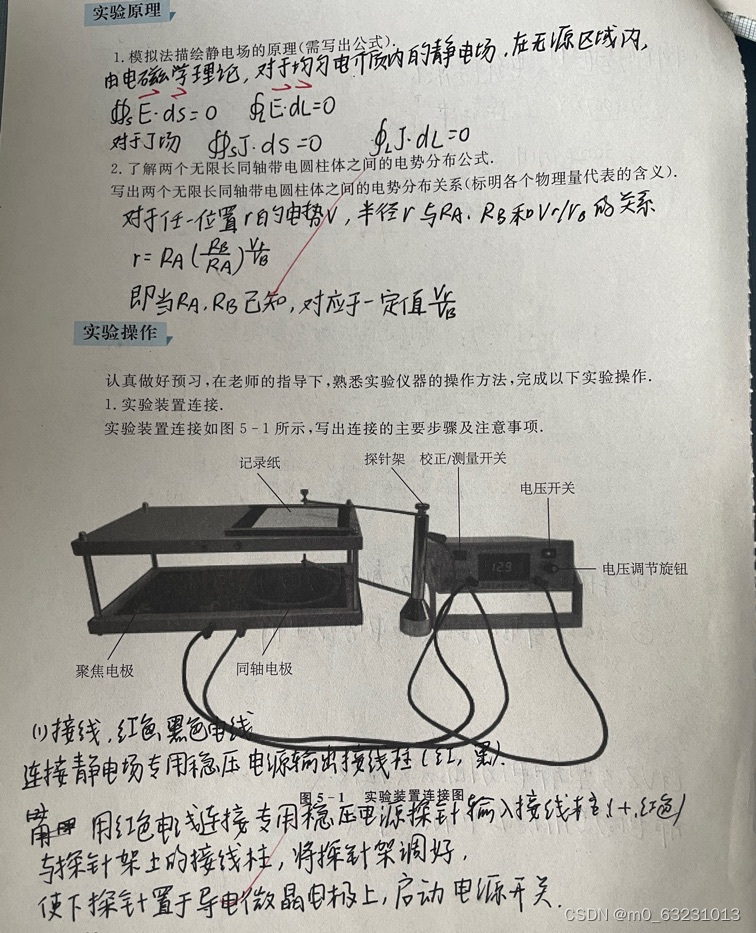 实验原理
1.模拟法描绘静电场的原理(需写出公式).
由电磁学理论,对于均匀电介质内的静电场,在无源区域内,
∯s E·ds=0 ∮L E·dL=0
对于J场 ∯s J·ds=0 ∮L J·dL=0
2.了解两个无限长同轴带电圆柱体之间的电势分布公式.
写出两个无限长同轴带电圆柱体之间的电势分布关系(标明各个物理量代表的含义).
对于任一位置r的电势V,半径r与RA、RB和Vr/VB的关系
r=RA(RB/RA)^(Vr/VB)
即当RA、RB已知,对应于一定值Vr/VB
实验操作
认真做好预习,在老师的指导下,熟悉实验仪器的操作方法,完成以下实验操作.
1.实验装置连接.
实验装置连接如图5-1所示,写出连接的主要步骤及注意事项.
记录纸
探针架
校正/测量开关
电压开关
129
电压调节旋钮
聚焦电极
同轴电极
(1)接线,红色、黑色电线
连接静电场专用稳压电源输出接线柱(红,黑).
图5-1 实验装置连接图
用红色电线连接专用稳压电源探针输入接线柱(+,红色)
与探针架上的接线柱,将探针架调好,
使下探针置于导电微晶电极上,启动电源开关.
CSDN @m0_63231013